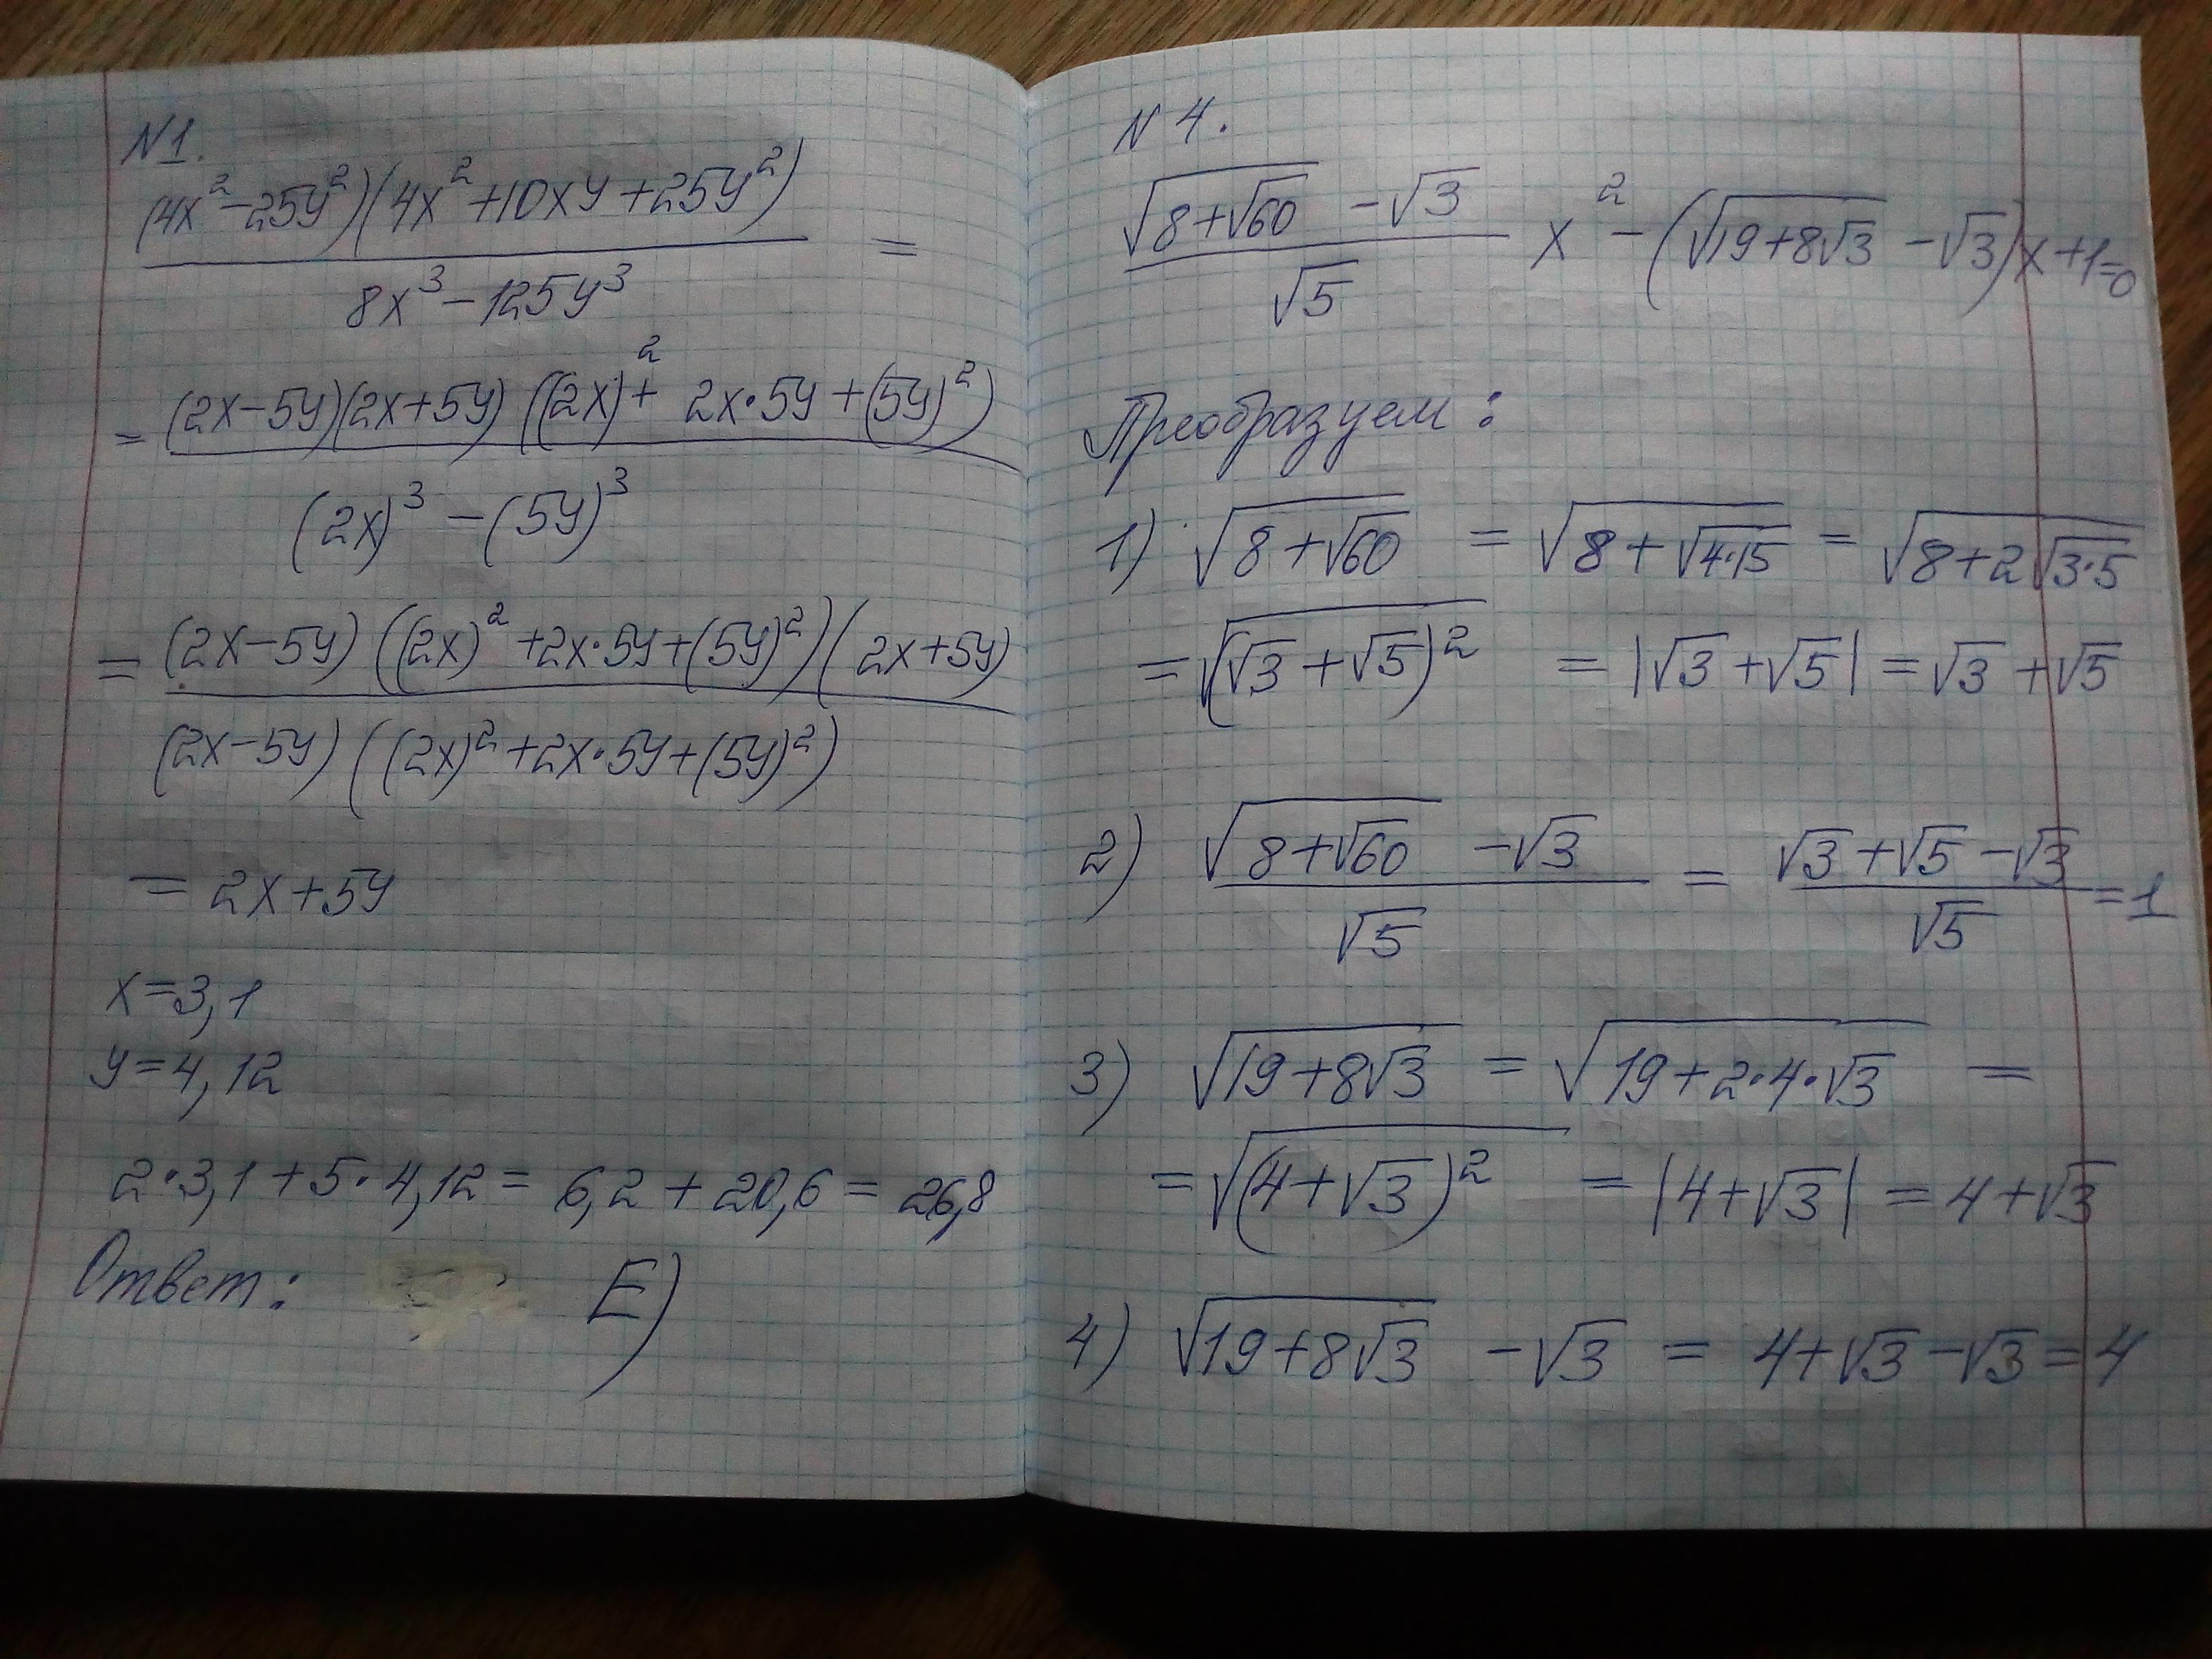 N1.
(4x²-25y²)(4x²+10xy+25y²)
=
8x³-125y³
= (2x-5y)(2x+5y)((2x)²+2x·5y+(5y)²)
(2x)³-(5y)³
= (2x-5y)((2x)²+2x·5y+(5y)²)(2x+5y)
(2x-5y)((2x)²+2x·5y+(5y)²)
= 2x+5y
x=3,1
y=4,12
2·3,1+5·4,12=6,2+20,6=26,8
Ответ: E)
N4.
√(8+√60) -√3
x²-(√(19+8√3) -√3)x+1=0
√5
Преобразуем:
1) √(8+√60) = √(8+√(4·15)) = √(8+2√(3·5))
= √((√3+√5)²) = |√3+√5| = √3+√5
2) (√(8+√60) -√3)/√5 = (√3+√5-√3)/√5 = 1
3) √(19+8√3) = √(19+2·4·√3) =
= √((4+√3)²) = |4+√3| = 4+√3
4) √(19+8√3) -√3 = 4+√3-√3=4